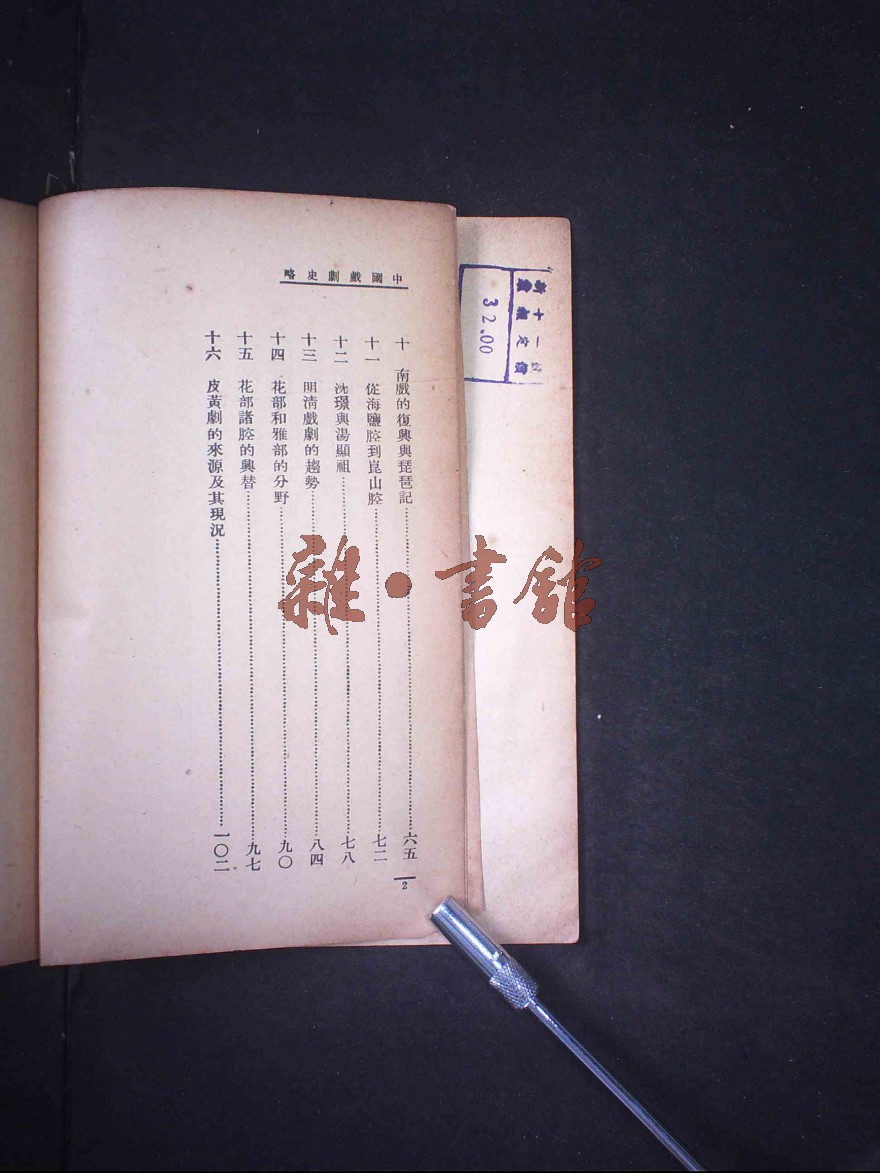 中國戲劇史略
十 南戲的復興與琵琶記……六五
十一 從海鹽腔到崑山腔……七二
十二 沈璟與湯顯祖……七八
十三 明清戲劇的趨勢……八四
十四 花部和雅部的分野……九〇
十五 花部諸腔的興替……九七
十六 皮黃劇的來源及其現況……一〇二
2
32.00
雜·書館